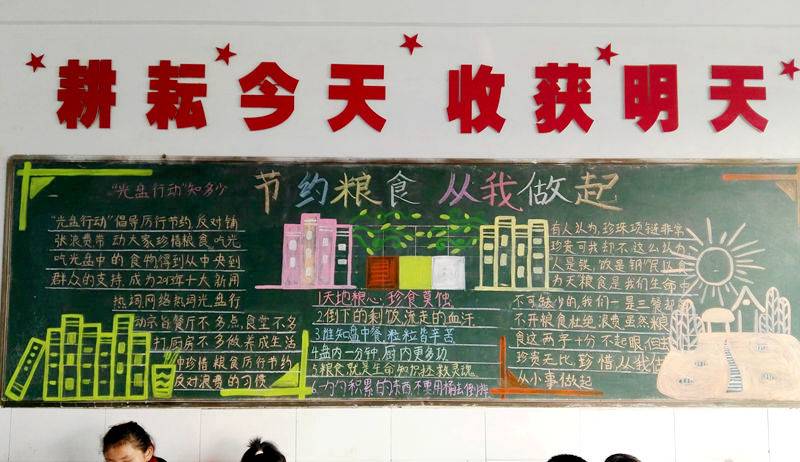 耕耘今天 收获明天
节约粮食 从我做起
"光盘行动"知多少
"光盘行动"倡导厉行节约,反对铺
张浪费带动大家珍惜粮食吃光
吃光盘中的食物得到从中央到
群众的支持,成为2013年十大新闻
热词网络热词光盘行
动示
餐厅不多点,食堂不多
打厨房不多做养成生活
中珍惜粮食厉行节约
反对浪费的习惯
1天地粮心珍食莫蚀
2倒下的剩饭流走的血汗
3惟知盘中餐粒粒皆辛苦
4盘内一分钟,厨内更多功
5粮食就是生命知识拯救灵魂
有人认为,珍珠项链非常
珍贵可我却不这么认为
人是铁,饭是钢"民以食
为天粮食是我们生命中
不可缺少的,我们一是三餐都
不开粮食杜绝浪费虽然粮
食这两字十分不起眼但
珍贵无比珍惜从我做
从小事做起